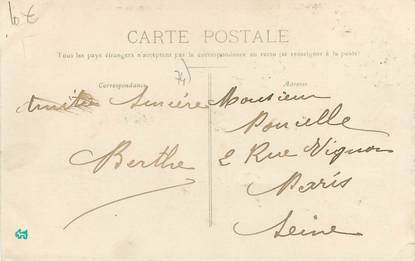 10 €
CARTE POSTALE
Tous les pays étrangers n'acceptent pas la correspondance au recto (se renseigner à la poste)
Correspondance
Adresse
74)
Amitié Sincère
Berthe
Monsieur
Poucelle
2 Rue Vignon
Paris
Seine